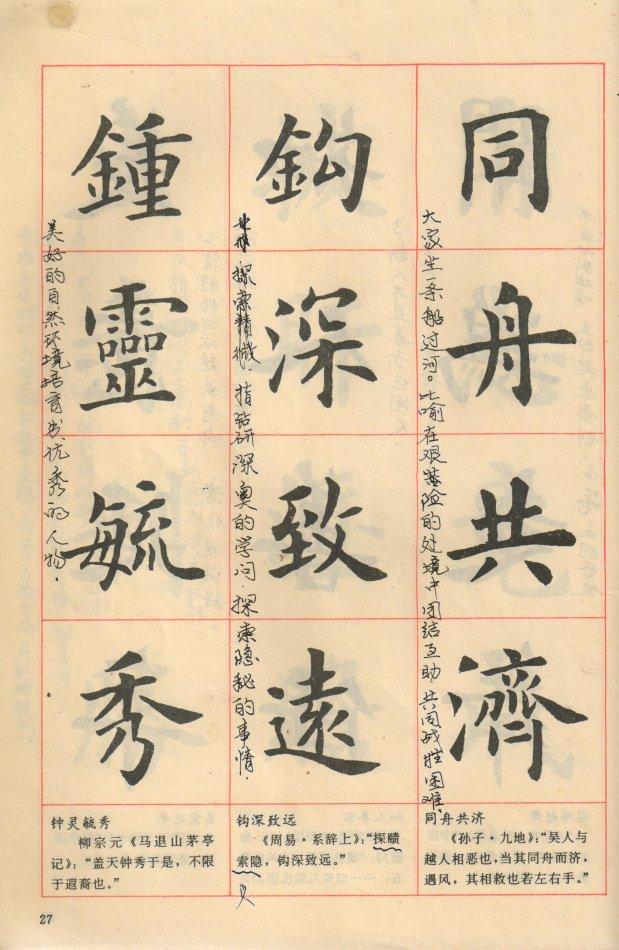 同舟共濟
大家坐一条船过河。比喻在艰险的处境中团结互助,共同战胜困难.
同舟共济
《孙子·九地》:“吴人与
越人相恶也,当其同舟而济,
遇风,其相救也若左右手。”
鉤深致遠
探索精微,指钻研深奥的学问.探索隐秘的事情.
钩深致远
《周易·系辞上》:“探赜
索隐,钩深致远。”
鍾靈毓秀
美好的自然环境培育出优秀的人物.
钟灵毓秀
柳宗元《马退山茅亭
记》:“盖天钟秀于是,不限
于遐裔也。”
27